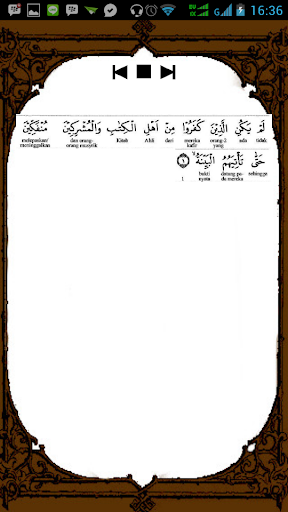 16:36
لَمْ يَكُنِ الَّذِيْنَ كَفَرُوْا مِنْ اَهْلِ الْكِتٰبِ وَالْمُشْرِكِيْنَ مُنْفَكِّيْنَ
tidak ada orang-2 yang mereka kafir dari Ahli Kitab dan orang-orang musyrik melepaskan/meninggalkan
حَتّٰى تَأْتِيَهُمُ الْبَيِّنَةُ ۙ ١
sehingga datang pada mereka bukti nyata 1